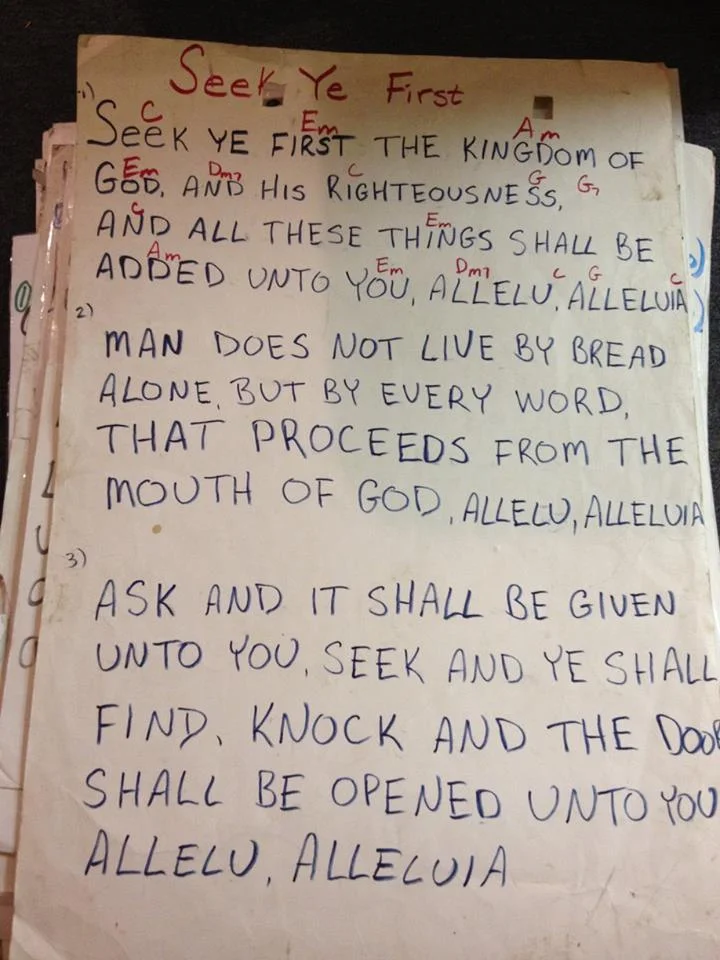 Seek Ye First
1)
C Em Am
Seek YE FIRST THE KINGDOM OF
Em Dm7 C G G7
GOD, AND HIS RIGHTEOUSNESS,
C Em
AND ALL THESE THINGS SHALL BE
Am Em Dm7 C G C
ADDED UNTO YOU, ALLELU, ALLELUIA
2)
MAN DOES NOT LIVE BY BREAD
ALONE, BUT BY EVERY WORD,
THAT PROCEEDS FROM THE
MOUTH OF GOD, ALLELU, ALLELUIA
3)
ASK AND IT SHALL BE GIVEN
UNTO YOU, SEEK AND YE SHALL
FIND, KNOCK AND THE DOOR
SHALL BE OPENED UNTO YOU
ALLELU, ALLELUIA